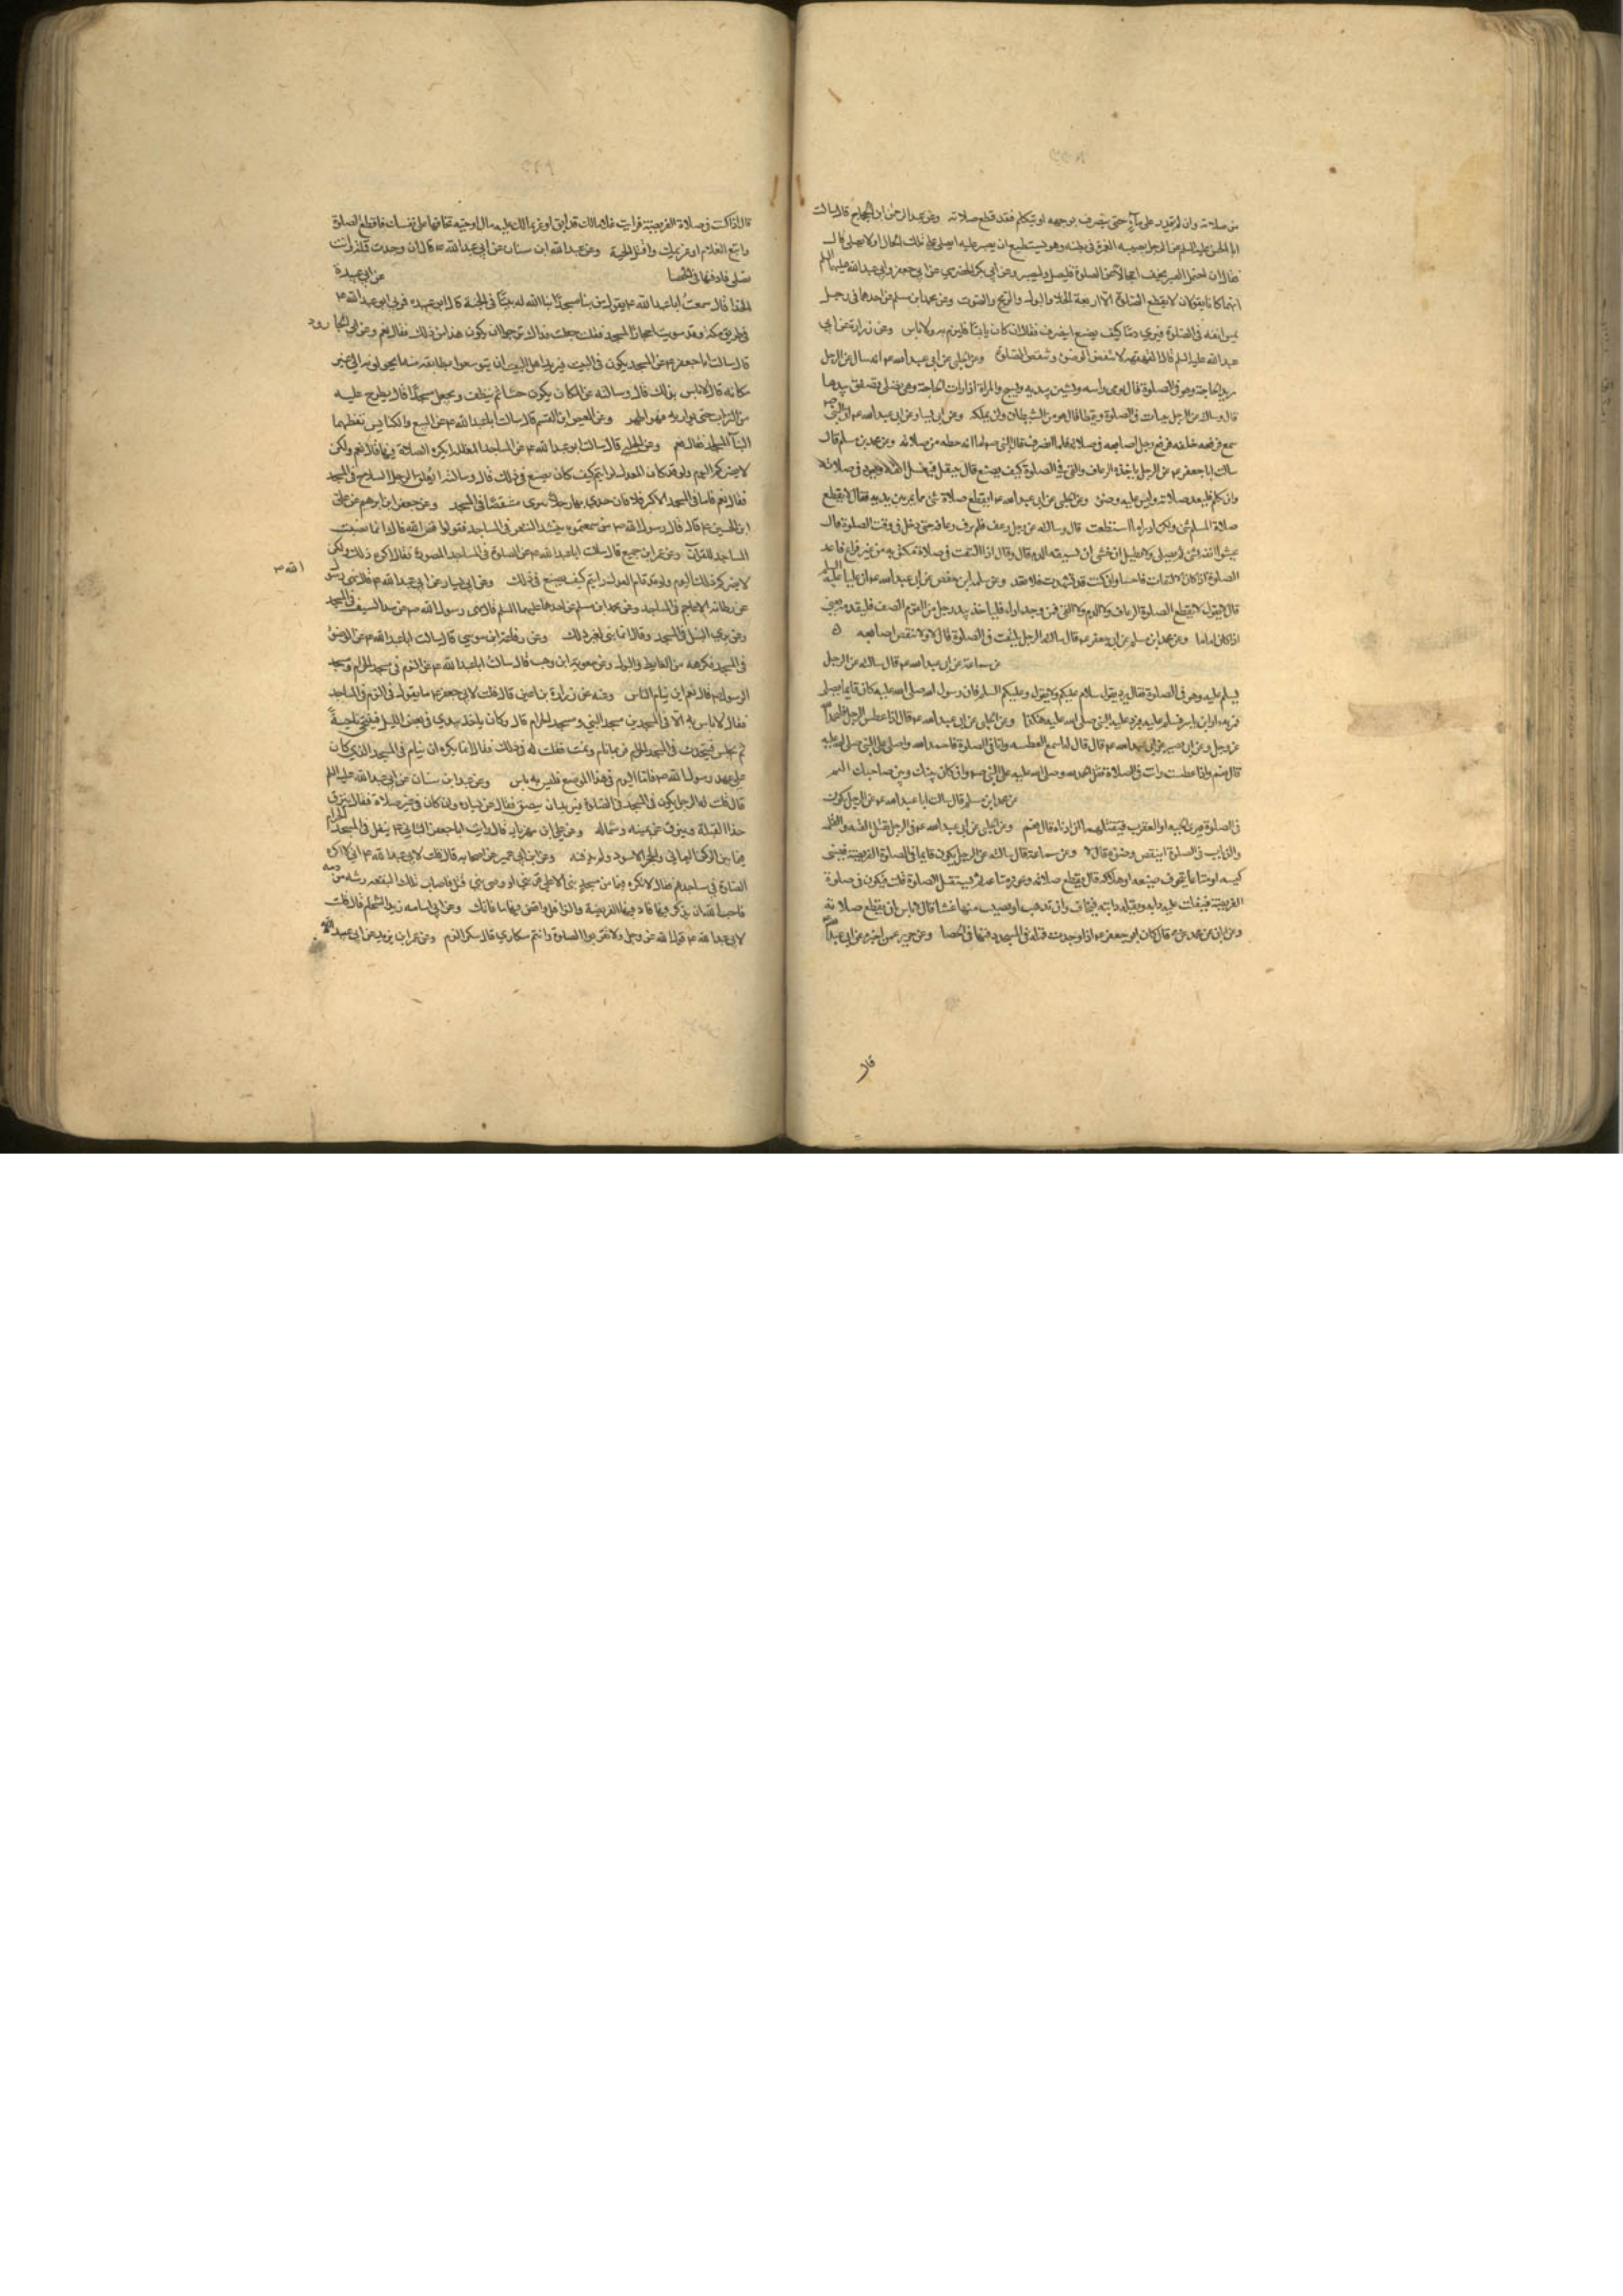 من صلاته وان لم يقدر على مآء حتى ينصرف بوجهه او يتكلم فقد قطع صلاته وعن عبد الرحمن ابن الحجاج قال سالت
ابا الحسن عليه السلم عن الرجل يصيبه الغمز فى بطنه وهو يستطيع ان يصبر عليه ايصلى على تلك الحال او لا يصلى قال
فقال ان احتمل الصبر ولم يخف اعجالا عن الصلوة فليصل وليصبر وعن ابي بكر الحضرمي عن ابي جعفر وابي عبد الله عليهما السلم
انهما كانا يقولان لا يقطع الصلوة الا اربعة الخلا والبول والريح والصوت وعن محمد ابن مسلم عن احدهما فى رجل
يمس انفه فى الصلوة فيري دما كيف يصنع اينصرف فقال ان كان يابسا فليرم به ولا باس وعن زرارة عن ابي
عبد الله عليه السلم قال القهقهة لا تنقض الوضوء وتنقض الصلوة وعن الحلبي عن ابي عبد الله ع انه سال عن الرجل
يريد الحاجة وهو فى الصلوة فقال يومى براسه ويشير بيديه ويسبح والمراة اذا ارادت الحاجة وهى تصلى تصفق بيدها
سمع فرقعه خلفه فرقع رجل اصابعه فى صلاته فلما انصرف قال النبي ص اما انه حظه من صلاته وعن محمد بن مسلم قال
سالت ابا جعفر ع عن الرجل ياخذه الرعاف والقى فى الصلوة كيف يصنع قال ينفتل فيغسل انفه ويعود فى صلاته
وان تكلم فليعد صلاته وليس عليه وضوء وعن الحلبي عن ابي عبد الله ع ايقطع صلاة شى مما يمر بين يديه فقال لا يقطع
صلاة المسلم شى ولكن ادراوا ما استطعت قال وسالته عن رجل رعف فلم يرق رعافه حتى دخل فى وقت الصلوة قال
يحشوا انفه بشى ثم يصلى ولا يطيل ان خشى ان يسبقه الدم قال وقال اذا التفت فى صلاة مكتوبه من غير فراغ فاعد
الصلوة اذا كان الالتفات فاحشا وان كنت قد تشهدت فلا تعد وعن سلمه ابن حفص عن ابي عبد الله ع ان عليا عليه السلم
قال يقول لا يقطع الصلوة الرعاف ولا الدم ولا القى فمن وجد اذا فلياخذ بيد رجل من القوم من الصف فليقدمه يعنى
اذا كان اماما وعن محمد ابن مسلم عن ابي جعفر ع قال سالته الرجل يلتفت فى الصلوة قال لا ولا ينقض اصابعه
عن سماعة عن ابي عبد الله ع قال سالته عن الرجل
يسلم عليه وهو فى الصلوة فقال يرد يقول سلام عليكم ولا يقول وعليكم السلم فان رسول الله صلى الله عليه كان قايما يصلى
فمر به عمار ابن ياسر فسلم عليه فرد عليه النبى صلى الله عليه هكذا وعن الحلبي عن ابي عبد الله ع قال اذا عطس الرجل فليحمد الله
عز وجل وعن ابي بصير عن ابي عبد الله ع قال قال له اسمع العطسه وانا فى الصلوة فاحمد الله واصلى على النبى صلى الله عليه
قال نعم واذا عطست وانت فى الصلاة فقل الحمد لله وصل الله عليه على النبى ص وان كان بينك وبين صاحبك اليم
عن محمد ابن مسلم قال سالت ابا عبد الله ع عن الرجل يكون
فى الصلوة فيرى الحيه او العقرب فيقتلهما ان اذياه قال نعم وعن الحلبي عن ابي عبد الله ع فى الرجل يقتل البقه والقمله
والذباب فى الصلوة اينقض وضوه قال لا وعن سماعة قال سالته عن الرجل يكون قايما فى الصلوة الفريضة فينسى
كيسه او متاعا يتخوف ضيعته او هلاكه قال يقطع صلاته ويحرز متاعه ثم يستقبل الصلوة قلت فيكون فى صلوة
الفريضة فتفلت عليه دابه ويفلت دابته فيخاف وان تذهب او يصيب منها عنتا قال لا باس ان يقطع صلاته
قال
قال اذا كنت فى صلاة الفريضة فرايت غلاما لك قد ابق او غريما لك عليه مال او حيه تخافها على نفسك فاقطع الصلوة
واتبع الغلام او غريمك واقتل الحية وعن عبد الله ابن سنان عن ابي عبد الله ع قال ان وجدت قملة وانت
تصلى فادفنها فى الحصا عن ابي عبيدة
الحذا قال سمعت ابا عبد الله ع يقول من بنا مسجدا بنا الله له بيتا فى الجنة قال ابو عبيده فمر بي ابو عبد الله ع
فى طريق مكه وقد سويت احجارا لمسجد فقلت جعلت فداك نرجوا ان يكون هذا من ذلك فقال نعم وعن ابي الجارود
قال سالت ابا جعفر ع عن المسجد يكون فى البيت فيريد اهل البيت ان يتوسعوا بطايفه منه او يحولونه الى غير
مكانه قال لا باس بذلك قال وسالته عن المكان يكون حشا ثم ينظف ويجعل مسجدا قال يطرح عليه
من التراب حتى يواريه فهو اطهر وعن العيص ابن القسم قال سالت ابا عبد الله ع عن البيع والكنايس نقضهما
لبنآ المسجد فقال نعم وعن الحلبي قال سالت ابو عبد الله ع عن المساجد المظلله ايكره الصلاة فيها قال نعم ولكن
لا يضركم اليوم ولو قد كان العدل لرايتم كيف كان يصنع فى ذلك قال وسالته ايعلق الرجل السلاح فى المسجد
فقال نعم فاما فى المسجد الاكبر فلا فان جدي نهى رجلا يبرى مشقصا فى المسجد وعن جعفر ابن ابرهيم عن على
ابن الحسين ع قال قال رسول الله ص من سمعتموه ينشد الشعر فى المساجد فقولوا فض الله فاك انما نصبت
المساجد للقران وعن عمر ابن جميع قال سالت ابا عبد الله ع عن الصلوة فى المساجد المصورة فقال اكره ذلك ولكن
لا يضركم ذلك اليوم ولو قد قام العدل رايتم كيف يصنع فى ذلك وعن ابي سيار عن ابي عبد الله ع قال نهى رسول الله ص
عن رطانة الاعاجم فى المساجد وعن محمد ابن مسلم عن احدهما عليهما السلم قال نهى رسول الله ص عن سل السيف فى المسجد
وعن بري النبل فى المسجد وقال انما بني لغير ذلك وعن رفاعة ابن موسى قال سالت ابا عبد الله ع عن الوضوء
فى المسجد فكرهه من الغايط والبول وعن معوية ابن وهب قال سالت ابا عبد الله ع عن النوم فى مسجد الحرام ومسجد
الرسول ص قال نعم اين ينام الناس وعنه عن زرارة بن اعين قال قلت لابي جعفر ع ما يقول فى النوم فى المساجد
فقال لا باس به الا فى المسجدين مسجد النبي ومسجد الحرام قال وكان ياخذ بيدي فى بعض الليل فيتنحى ناحيةً
ثم يجلس فيتحدث فى المسجد الحرام فربما نام ونمت فقلت له فى ذلك فقال انما يكره ان ينام فى المسجد الذي كان
على عهد رسول الله ص فاما اليوم فى هذا الموضع فليس به باس وعن عبد ابن سنان عن ابي عبد الله عليه السلم
قال قلت له الرجل يكون فى المسجد فى الصلوة فيريد ان يبصق فقال عن يساره وان كان فى غير صلاة فقال لا يبزق
حذا القبلة ويبزق عن يمينه وشماله وعن على ابن مهزيار قال رايت ابا جعفر الثاني ع يتفل فى المسجد الحرام
فيما بين الركن اليماني والحجر الاسود ولم يدفنه وعن ابن ابي عمير عن اصحابه قال قلت لابي عبد الله ع اني لاكره
الصلوة فى مساجدهم فقال لا تكره فما من مسجد بنى الا على قبر نبي او وصى نبي قتل فاصاب تلك البقعه رشه من دمه
فاحب الله ان يذكر فيها فاد فيها الفريضة والنوافل واقض فيها ما فاتك وعن ابي اسامه زيد الشحام قال قلت
لابي عبد الله ع قول الله عز وجل ولا تقربوا الصلوة وانتم سكارى قال سكر النوم وعن عمر ابن يزيد عن ابي عبد الله